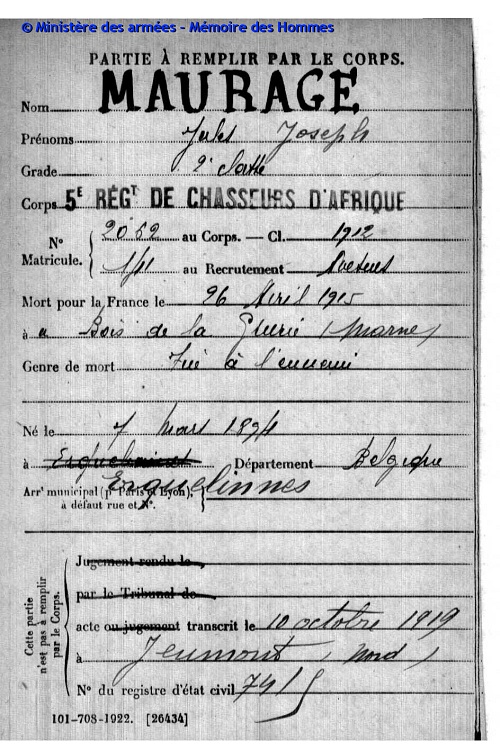 © Ministère des armées - Mémoire des Hommes
PARTIE À REMPLIR PAR LE CORPS.
Nom MAURAGE
Prénoms Jules Joseph
Grade 2e classe
Corps 5E RÉGT DE CHASSEURS D'AFRIQUE
N° Matricule. 2052 au Corps. — Cl. 1912
au Recrutement
Mort pour la France le 26 Avril 1915
à Bois de la Grurie (Marne)
Genre de mort Tué à l'ennemi
Né le 7 mars 1894
à Département Belgique
Arrt municipal (pr Paris et Lyon), Erquelinnes
à défaut rue et N°.
Cette partie n'est pas à remplir par le Corps.
Jugement rendu le
par le Tribunal de
acte ou jugement transcrit le 10 octobre 1919
à Jeumont (Nord)
N° du registre d'état civil 791
101-708-1922. [26434]